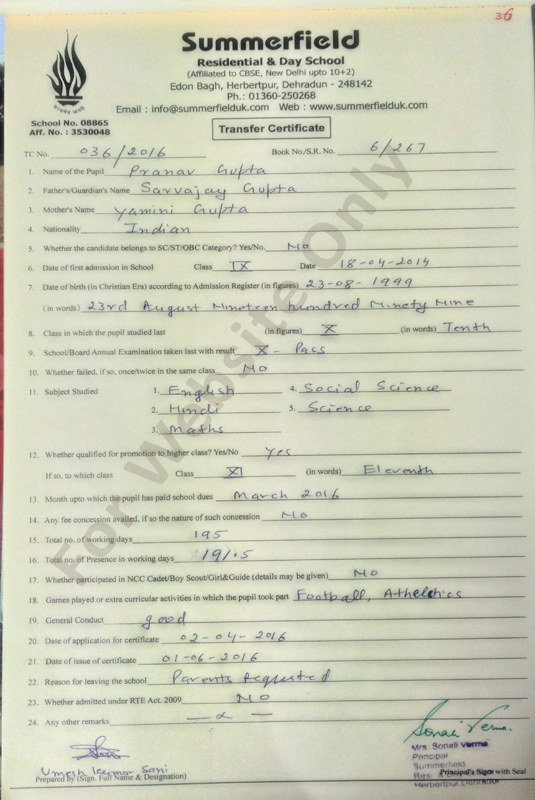 36
Summerfield
Residential & Day School
(Affiliated to CBSE, New Delhi upto 10+2)
Edon Bagh, Herbertpur, Dehradun - 248142
Ph.: 01360-250268
Email : info@summerfielduk.com Web : www.summerfielduk.com
School No. 08865
Aff. No. : 3530048
Transfer Certificate
TC No. 036/2016 Book No./S.R. No. 6/267
1. Name of the Pupil Pranav Gupta
2. Father's/Guardian's Name Sarvajay Gupta
3. Mother's Name Yamini Gupta
4. Nationality Indian
5. Whether the candidate belongs to SC/ST/OBC Category? Yes/No. No
6. Date of first admission in School Class IX Date 18-04-2014
7. Date of birth (in Christian Era) according to Admission Register (in figures) 23-08-1999
(in words) 23rd August Nineteen hundred Ninety Nine
8. Class in which the pupil studied last (in figures) X (in words) Tenth
9. School/Board Annual Examination taken last with result X - Pass
10. Whether failed, if so, once/twice in the same class No
11. Subject Studied 1. English 4. Social Science
2. Hindi 5. Science
3. Maths
12. Whether qualified for promotion to higher class? Yes/No Yes
If so, to which class Class XI (in words) Eleventh
13. Month upto which the pupil has paid school dues March 2016
14. Any fee concession availed, if so the nature of such concession No
15. Total no. of working days 195
16. Total no. of Presence in working days 191.5
17. Whether participated in NCC Cadet/Boy Scout/Girl&Guide (details may be given) No
18. Games played or extra curricular activities in which the pupil took part Football, Atheletics
19. General Conduct good
20. Date of application for certificate 02-04-2016
21. Date of issue of certificate 01-06-2016
22. Reason for leaving the school Parents Requested
23. Whether admitted under RTE Act. 2009 No
24. Any other remarks
Sonali Verma
Mrs Sonali Verma
Principal
Summerfield
Umesh Kumar Soni
Principal's Sign with Seal
Prepared by (Sign. Full Name & Designation)
Herbertpur, Dehradun
For Website Only